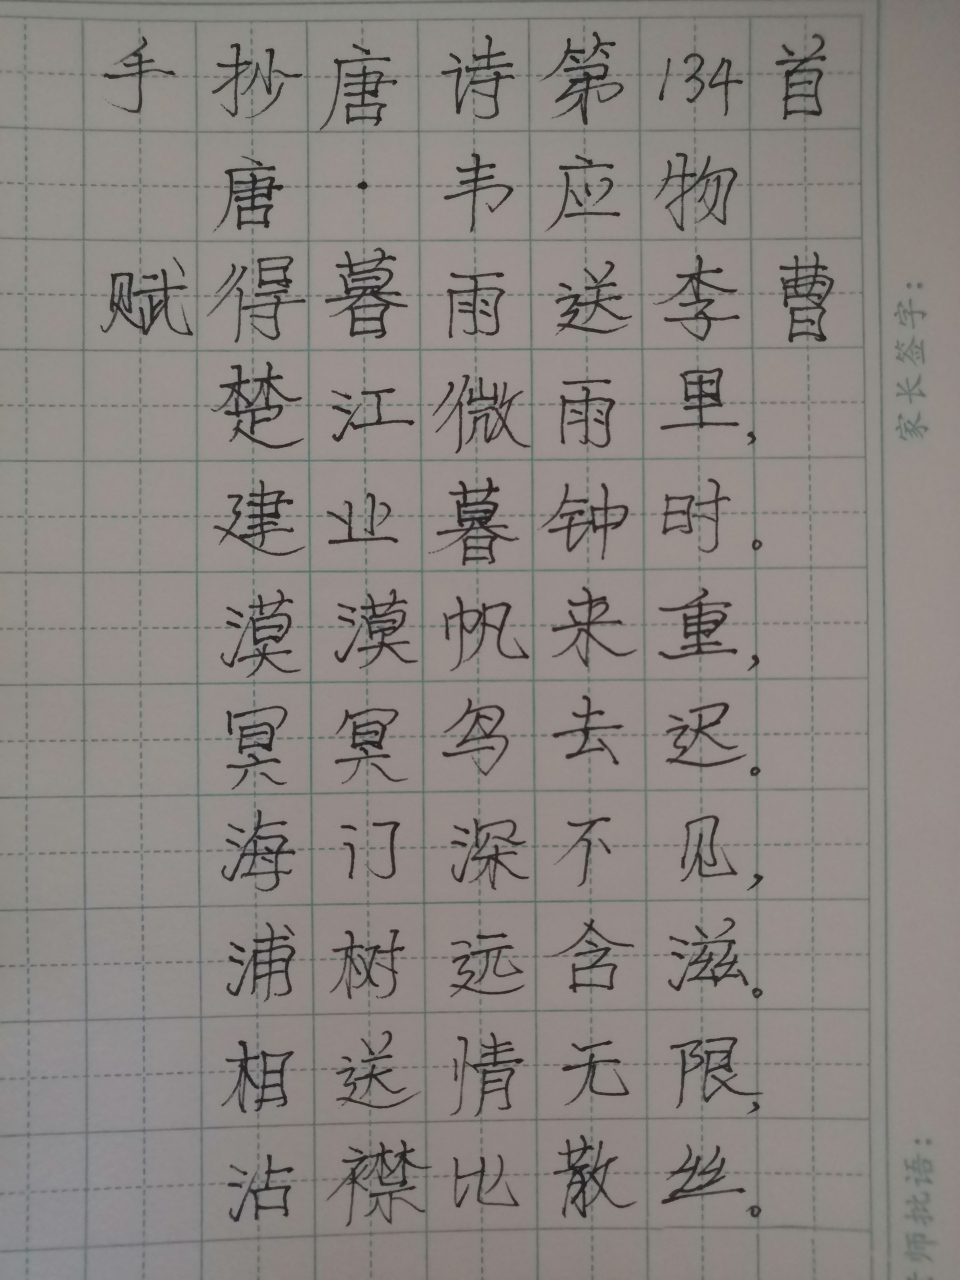 手抄唐诗第134首
唐·韦应物
赋得暮雨送李曹
楚江微雨里,
建业暮钟时。
漠漠帆来重,
冥冥鸟去迟。
海门深不见,
浦树远含滋。
相送情无限,
沾襟比散丝。
家长签字:
师批语: